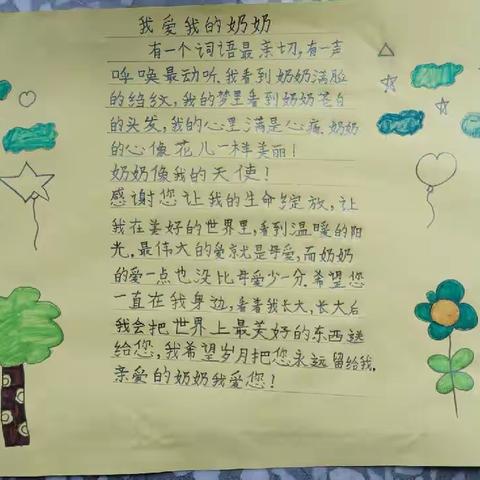 我爱我的奶奶
有一个词语最亲切,有一声
呼唤最动听.我看到奶奶满脸
的绉纹,我的梦里看到奶奶苍白
的头发,我的心里满是心痛.奶奶
的心像花儿一样美丽!
奶奶像我的天使!
感谢您让我的生命绽放,让
我在美好的世界里,看到温暖的阳
光,最伟大的爱就是母爱,而奶奶
的爱一点也没比母爱少一分.希望您
一直在我身边,看着我长大,长大后
我会把世界上最美好的东西送
给您,我希望岁月把您永远留给我.
亲爱的奶奶我爱您!